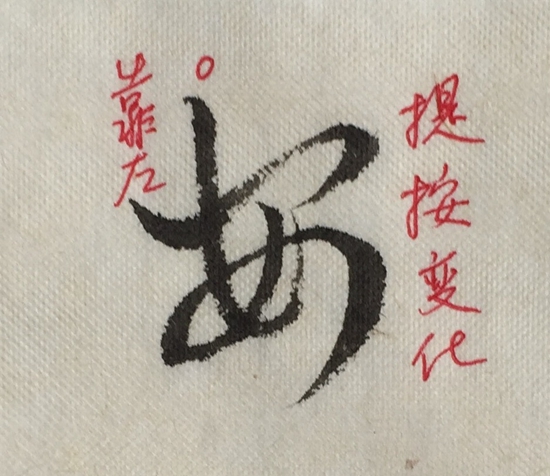 靠左
安
提按变化